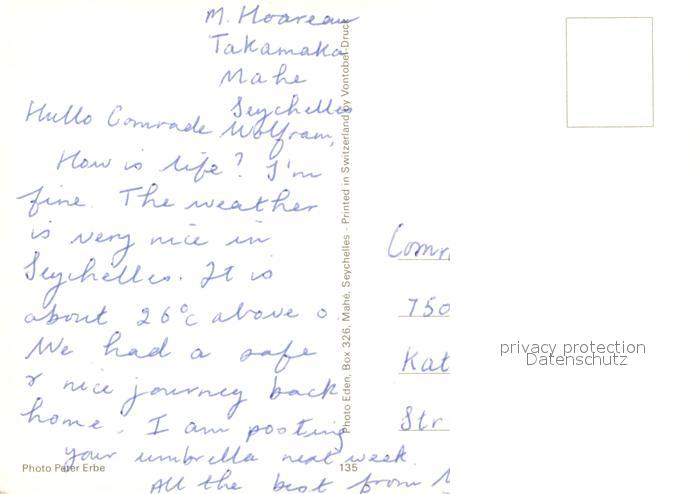 M. Hoareau
Takamaka
Mahe
Seychelles
Hullo Comrade Wolfram,
How is life? I'm
fine. The weather
is very nice in
Seychelles. It is
about 26°c above o.
We had a safe
& nice journey back
home. I am posting
your umbrella next week.
All the best from
Photo Peter Erbe
135
Photo Eden, Box 326, Mahé, Seychelles - Printed in Switzerland by Vontobel-Druck
Comr
750
Kat
Str
privacy protection
Datenschutz